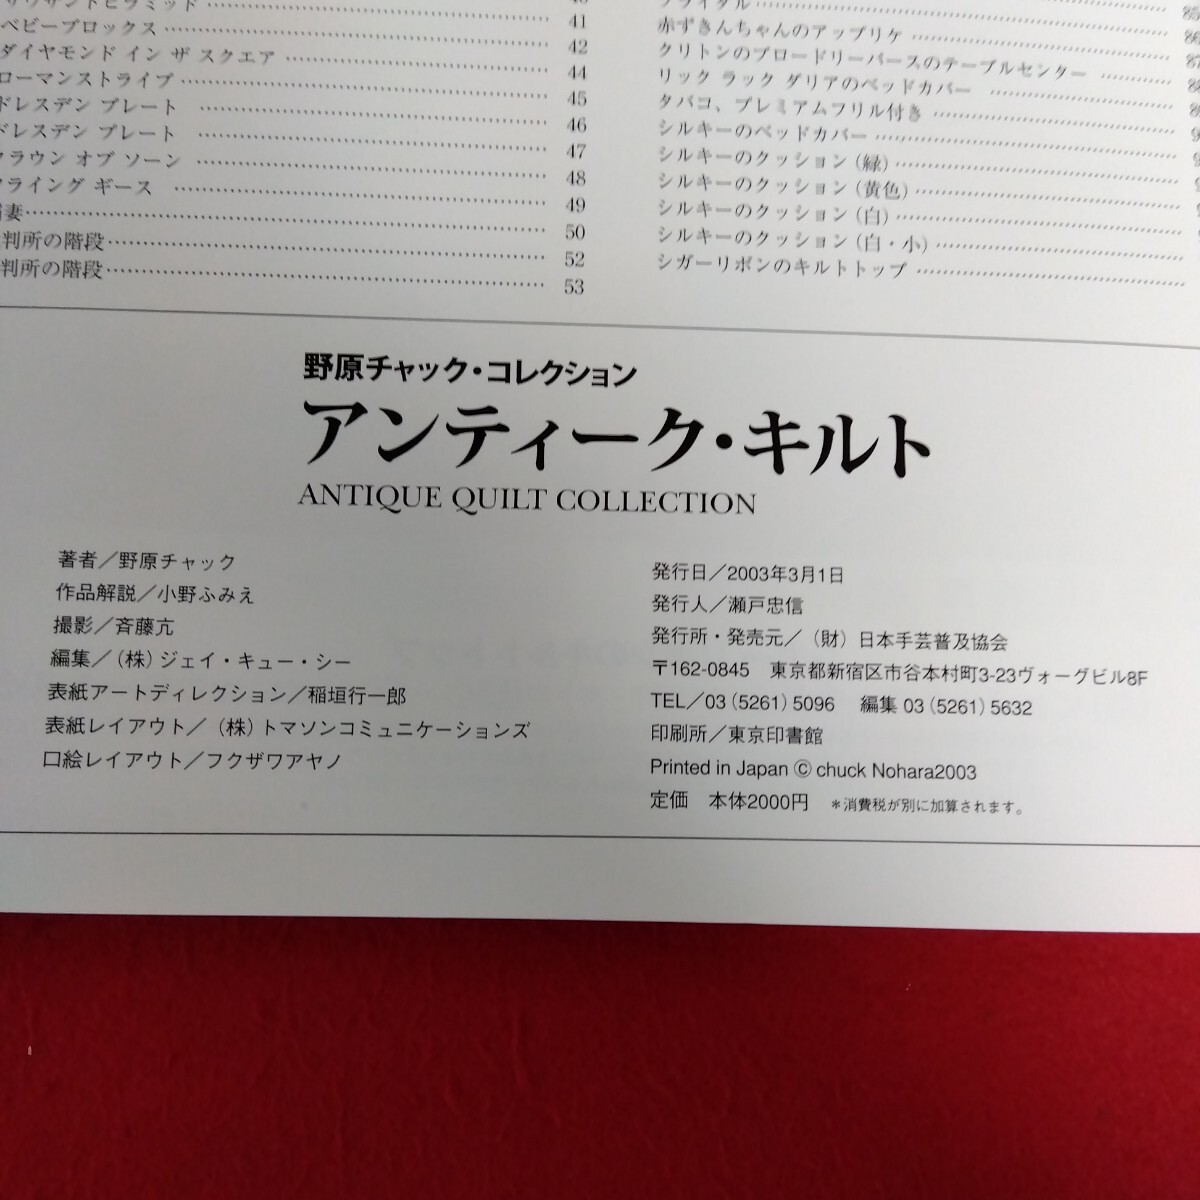 ベビーブロックス 41
ダイヤモンド イン ザ スクエア 42
ローマンストライプ 44
ドレスデン プレート 45
ドレスデン プレート 46
クラウン オブ ソーン 47
フライング ギース 48
妻 49
判所の階段 50
判所の階段 52
53
ブライダル 85
赤ずきんちゃんのアップリケ 86
クリトンのブロードリーバースのテーブルセンター 87
リック ラック ダリアのベッドカバー
タバコ、プレミアムフリル付き
シルキーのベッドカバー
シルキーのクッション(緑)
シルキーのクッション(黄色)
シルキーのクッション(白)
シルキーのクッション(白・小)
シガーリボンのキルトトップ
野原チャック・コレクション
アンティーク・キルト
ANTIQUE QUILT COLLECTION
著者／野原チャック
作品解説／小野ふみえ
撮影／斉藤亢
編集／(株)ジェイ・キュー・シー
表紙アートディレクション／稲垣行一郎
表紙レイアウト／(株)トマソンコミュニケーションズ
口絵レイアウト／フクザワアヤノ
発行日／2003年3月1日
発行人／瀬戸忠信
発行所・発売元／(財)日本手芸普及協会
〒162-0845 東京都新宿区市谷本村町3-23ヴォーグビル8F
TEL／03(5261)5096 編集 03(5261)5632
印刷所／東京印書館
Printed in Japan © chuck Nohara2003
定価 本体2000円 ＊消費税が別に加算されます。